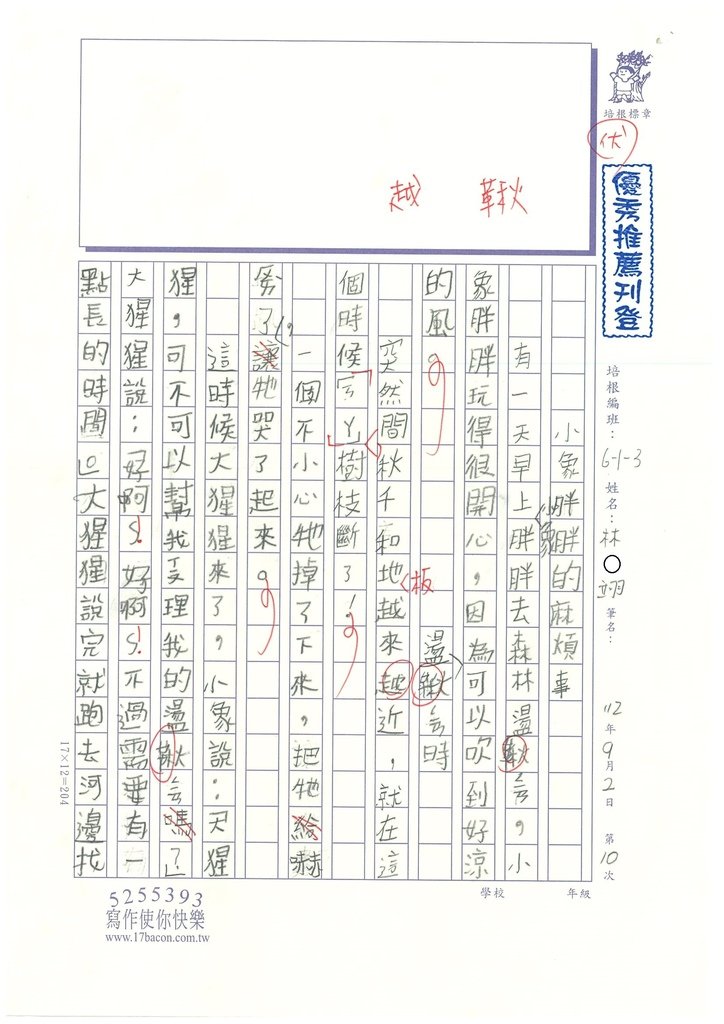 培根標章
伏
優秀推薦刊登
越 鞦
培根編班：6-1-3 姓名：林○翊 筆名：
112年9月2日 第10次
學校 年級
小象胖胖的麻煩事
有一天早上胖胖去森林盪鞦ㄑㄧㄢ，小
小象
象胖胖玩得很開心，因為可以吹到好涼
的風。
盪鞦ㄑㄧㄢ時
突然間秋千和地越來越近，就在這
板
個時候ㄎㄚ樹枝斷了！
一個不小心牠掉了下來，把牠給嚇
壞了讓牠哭了起來。
這時候大猩猩來了，小象說：「大猩
猩，可不可以幫我受理我的盪鞦ㄑㄧㄢ嗎？」
大猩猩說：好啊！好啊！不過需要有一
點長的時間」大猩猩說完就跑去河邊找
17×12=204
5255393
寫作使你快樂
www.17bacon.com.tw